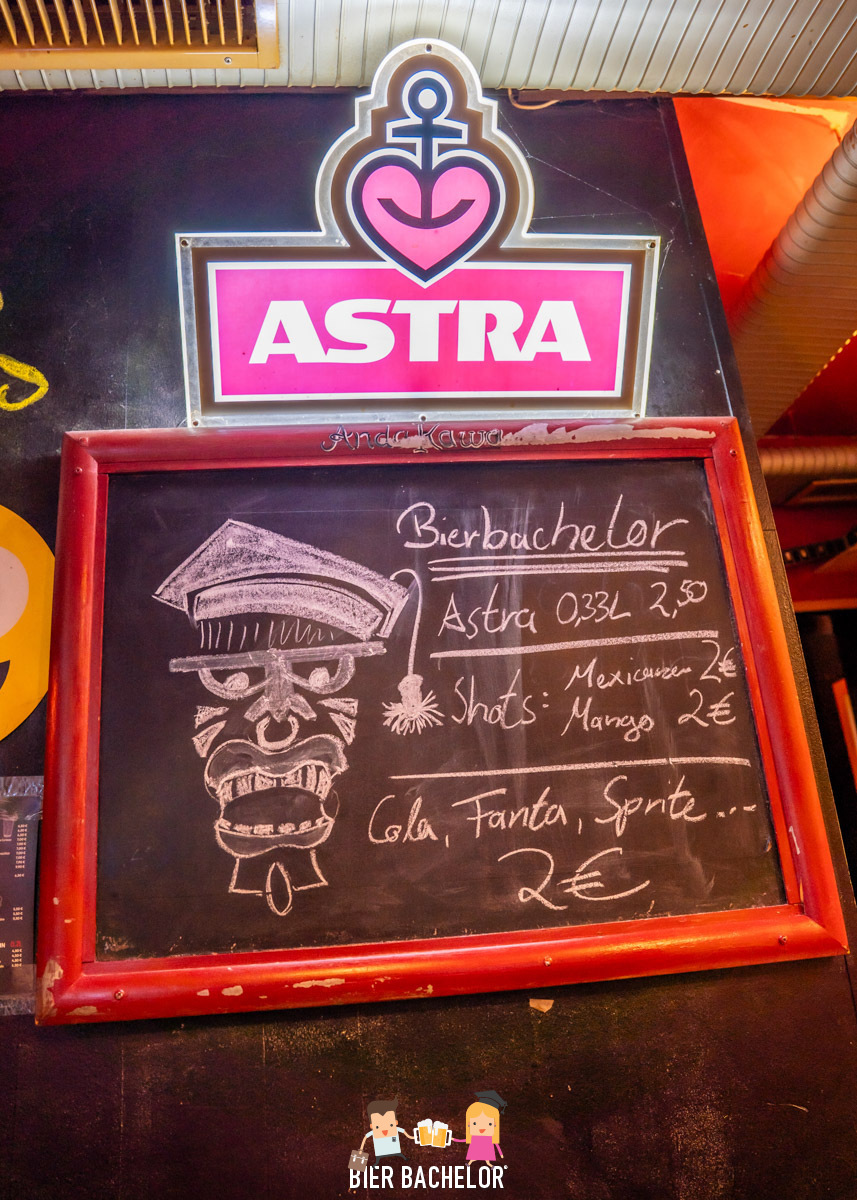 ASTRA
Bierbachelor
Astra 0,33L 2,50
Shots: Mexicaner 2€
Mango 2€
Cola, Fanta, Sprite ...
2€
BIER BACHELOR